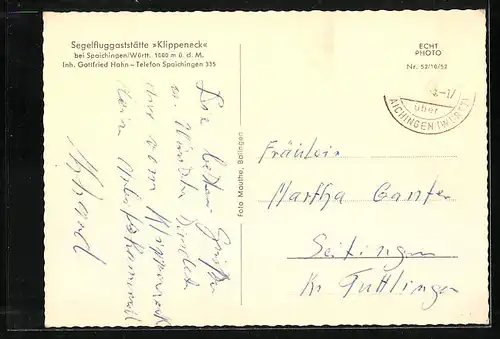 Segelfluggaststätte »Klippeneck«
bei Spaichingen/Württ. 1000 m ü. d. M.
Inh. Gottfried Hahn – Telefon Spaichingen 335
ECHT
PHOTO
Nr. 52/10/52
über
AICHINGEN (WÜRTT)
Foto Mauthe, Balingen
Die besten Grüße
u.
vom Klippeneck
Dein Arbeitskamerad
Fräulein
Martha Ganter
Seitingen
Kr. Tuttlingen